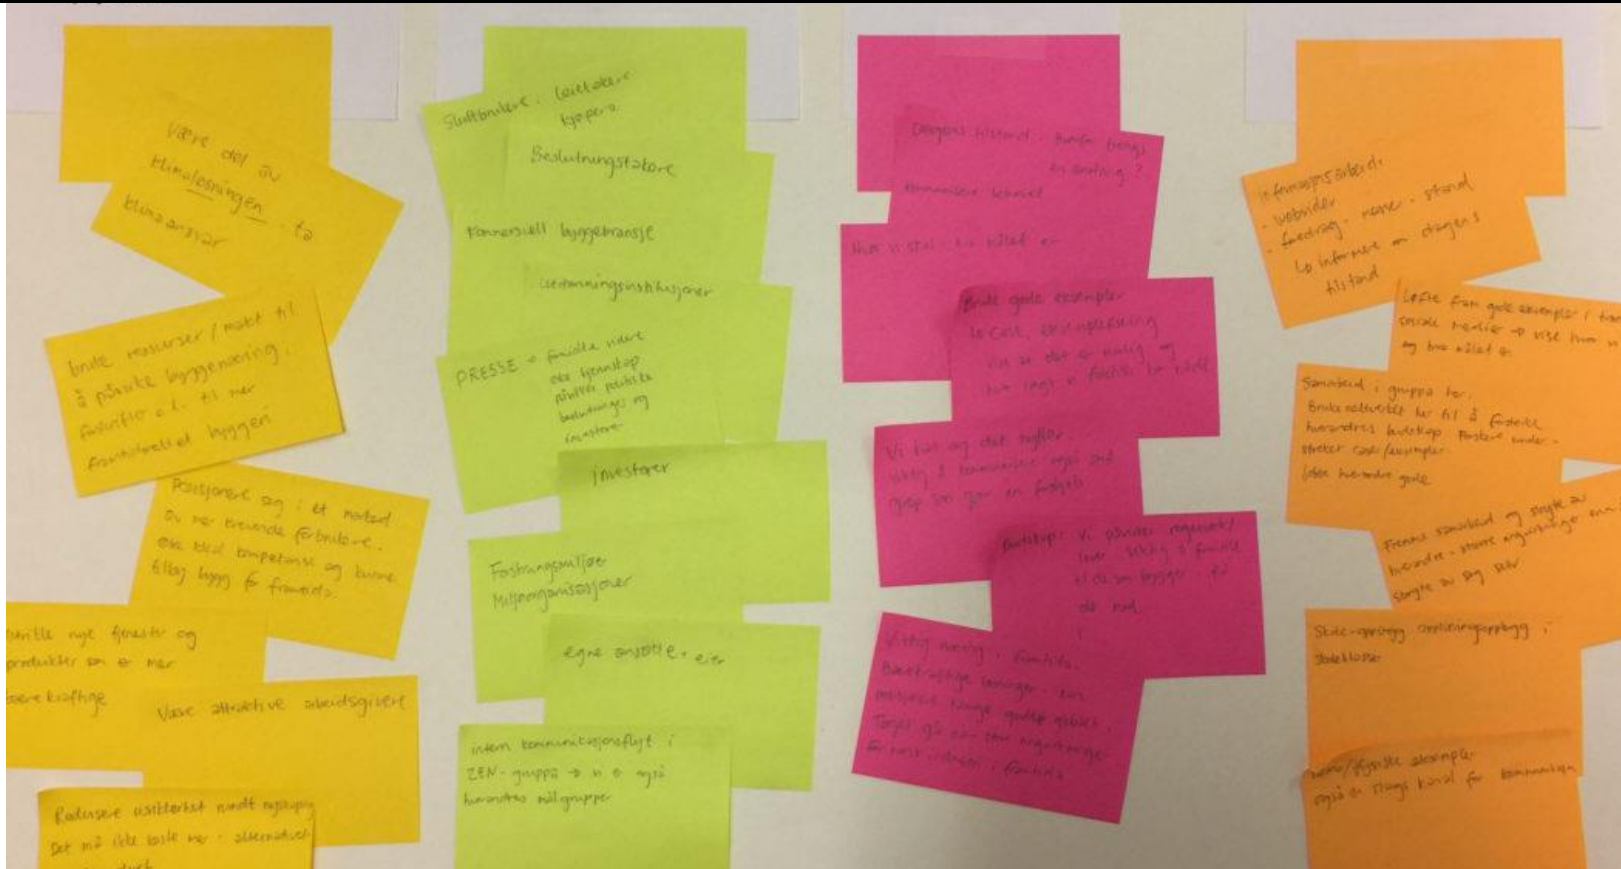 Være del av
klimaløsningen. ta
klimaansvar
bruke ressurser / makt til
å påvirke byggenæring,
forskrifter o.l. til mer
framtidsrettet byggeri
Posisjonere seg i et marked
av mer krevende forbrukere.
øke lokal kompetanse og kunne
tilby bygg for framtida.
utvikle nye tjenester og
produkter som er mer
bærekraftige
Være attraktive arbeidsgivere
Redusere usikkerhet rundt
Det må ikke koste mer - alternativet
Sluttbrukere: leietakere
kjøpere
Beslutningstakere
Kommersiell byggebransje
Utdanningsinstitusjoner
PRESSE → formidle videre
øke kjennskap
påvirker politiske
beslutninger og
investorer
investorer
Forskningsmiljøer
Miljøorganisasjoner
egne ansatte + eier
intern kommunikasjonsflyt i
ZEN-gruppa → vi er også
hverandres målgrupper
Dagens tilstand. Hvorfor trengs
en endring?
kommunisere behovet
Hvor vi skal - hva målet er
Bruke gode eksempler
vise at det er mulig og
Vi kan og det nytter.
viktig å kommunisere også små
grep som gjør en forskjell
Budskap: Vi påvirker
til de som bygger
Viktig næring i framtida.
Bærekraftige løsninger. kan
posisjonere Norge globalt.
informasjonsarbeid:
- websider
- foredrag - messer - stand
↳ informere om dagens
tilstand
Løfte fram gode eksempler i
sosiale medier → vise hvor vi
og hva målet er
Samarbeid i gruppa her.
Bruke nettverket her til å forsterke
hverandres budskap
løfte hverandre
Fremme samarbeid og styrke av
hverandre - større
styrke av seg selv
Skole-opplegg
skoleklasser
/fysiske eksempler
også en slags kanal for kommunikasjon